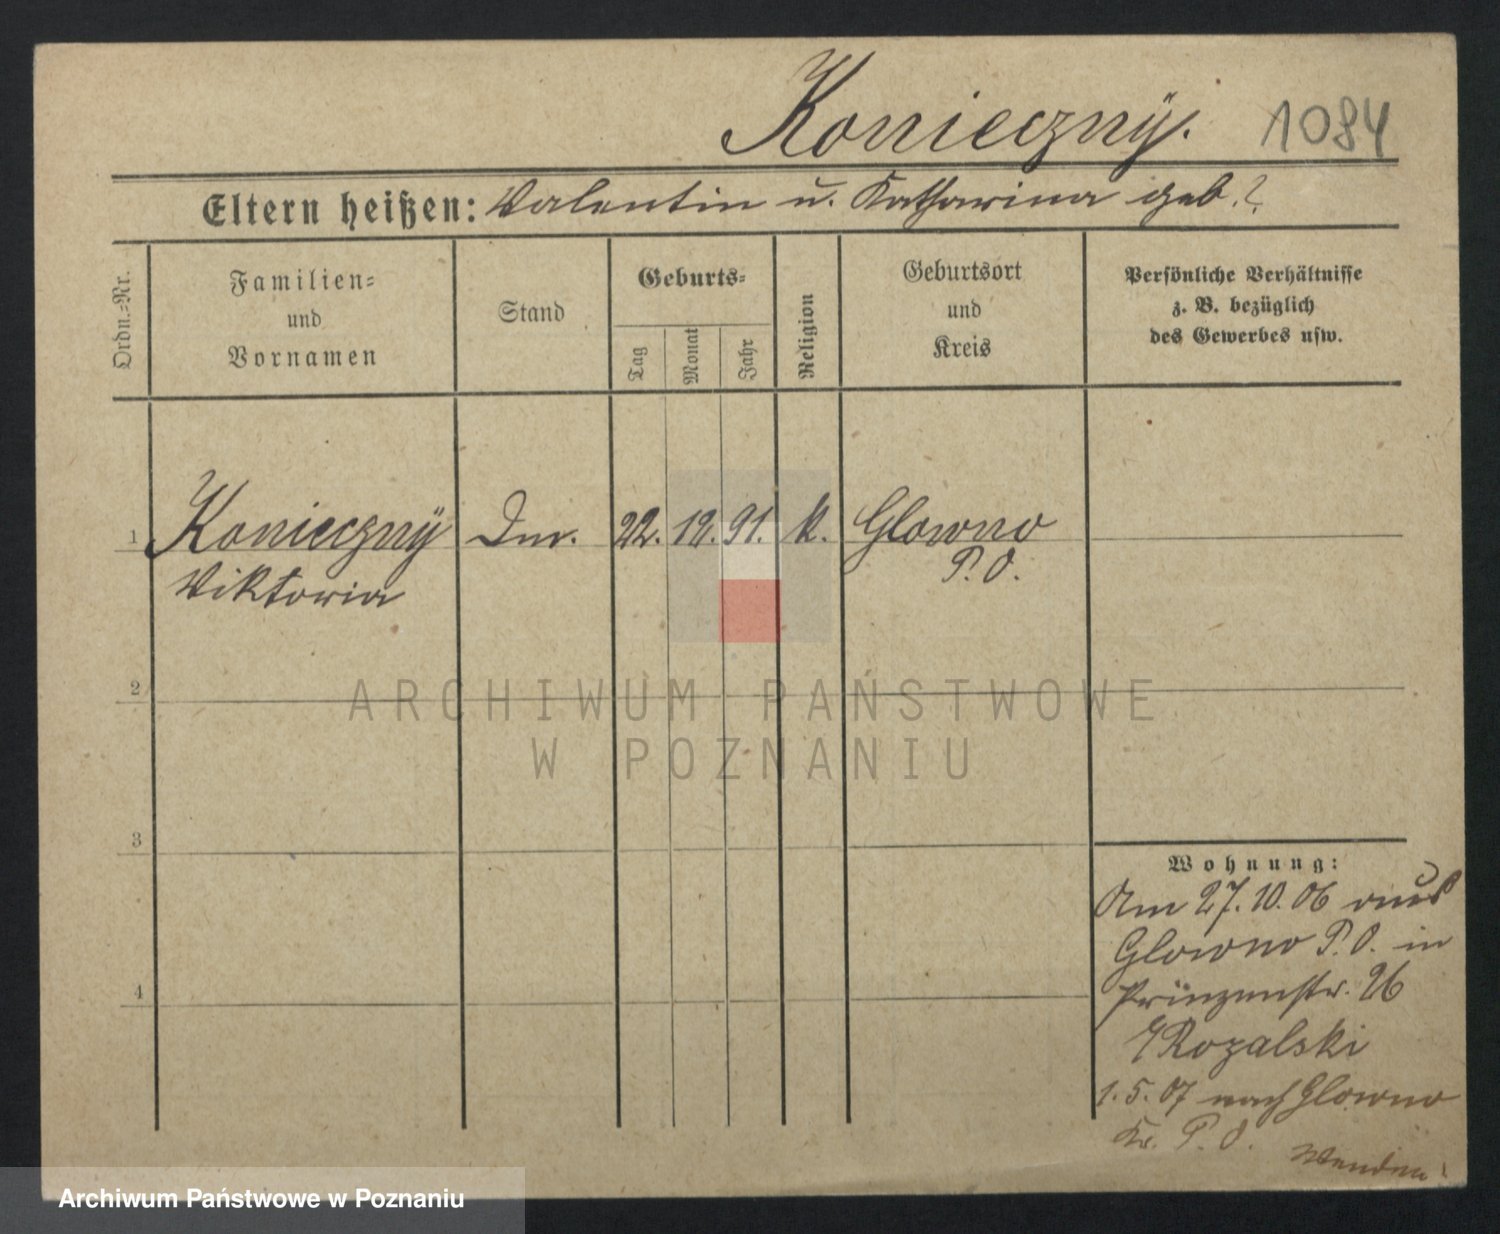 Konieczny. 1084
Eltern heißen: Valentin u. Katharina geb. ?
Ordn.-Nr.
Familien-
und
Vornamen
Stand
Geburts-
Tag
Monat
Jahr
Religion
Geburtsort
und
Kreis
Persönliche Verhältnisse
z. B. bezüglich
des Gewerbes usw.
1 Konieczny 22. 12. 91. k. Glowno
Viktoria P. O.
2
ARCHIWUM PAŃSTWOWE
W POZNANIU
3
Wohnung:
Am 27.10.06 aus
Glowno P. O. in
Prinzenstr. 26
Rozalski
4
1.5.07 nach Glowno
Kr. P. O.
Wenden!
Archiwum Państwowe w Poznaniu